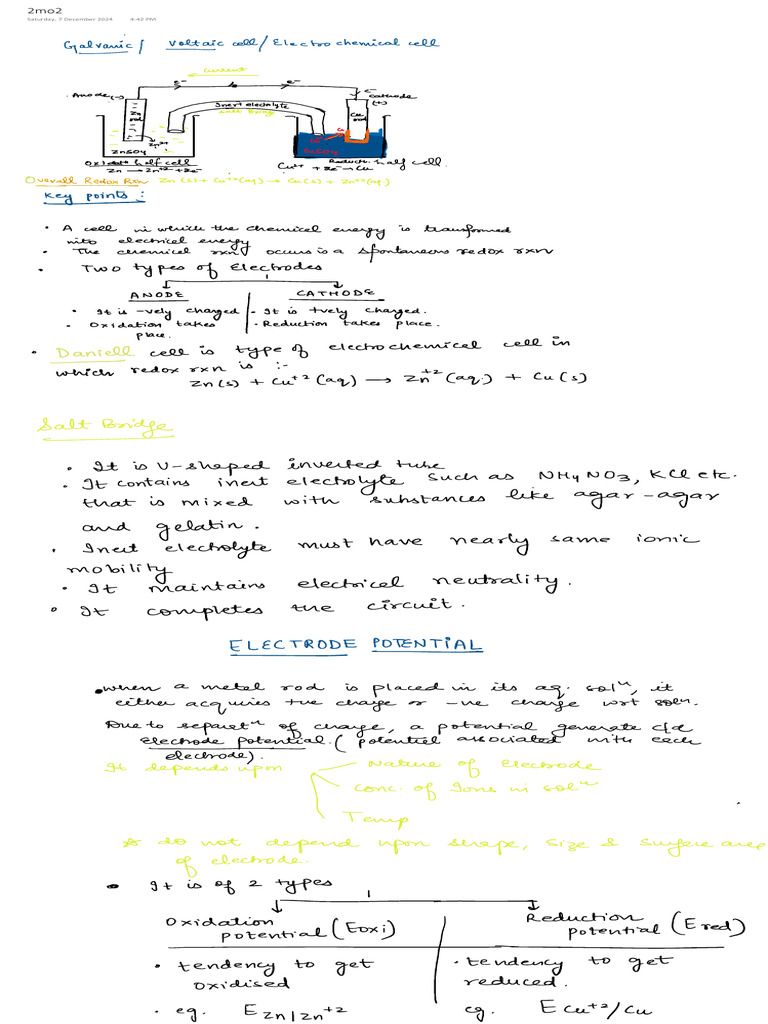 2mo2
Saturday, 7 December 2024 4:42 PM
Galvanic / Voltaic cell / Electro chemical cell
current
e⁻ e⁻
Anode(-)
e⁻
cathode
(+)
Zn
rod
Inert electrolyte
Salt Bridge
Cu
rod
Zn+2
ZnSO4
CuSO4
Oxidatn half cell
Zn → Zn+2 + 2e⁻
Reductn. half cell.
Cu2+ + 2e⁻ → Cu
Overall Redox Rxn Zn(s) + Cu+2(aq) → Cu(s) + Zn+2(aq)
Key points :
• A cell in which the chemical energy is transformed
into electrical energy
• The chemical rxn occurs is a spontaneous redox rxn
• Two types of Electrodes
ANODE CATHODE
• It is -vely charged • It is +vely charged.
• Oxidation takes • Reduction takes place.
place.
• Daniell cell is type of electrochemical cell in
which redox rxn is :-
Zn(s) + Cu+2 (aq) → Zn+2 (aq.) + Cu(s)
Salt Bridge
• It is U-shaped inverted tube
• It contains inert electrolyte such as NH4NO3, KCl etc.
that is mixed with substances like agar-agar
and gelatin.
• Inert electrolyte must have nearly same ionic
mobility
• It maintains electrical neutrality.
• It completes the circuit.
ELECTRODE POTENTIAL
• when a metal rod is placed in its aq. solⁿ, it
either acquires +ve charge or -ve charge wrt solⁿ.
Due to separatⁿ of charge, a potential generate c/d
electrode potential. ( potential associated with each
electrode).
It depends upon Nature of Electrode
Conc. of Ions in solⁿ
Temp
☆ do not depend upon shape, size & surface area
of electrode.
• It is of 2 types
Oxidation
potential (Eoxi)
Reduction
potential (Ered)
• tendency to get
oxidised
• tendency to get
reduced.
• eg. E Zn/Zn+2
eg. E Cu+2/Cu